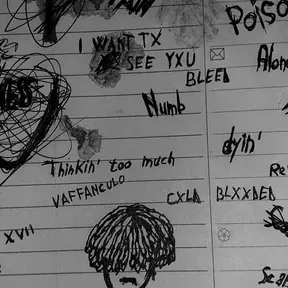 POISO
I WANT TX
SEE YXU
BLEED
Alon
Numb
dyin'
Thinkin' too much
VAFFANCULO
CXLD
BLXXDED
XVII